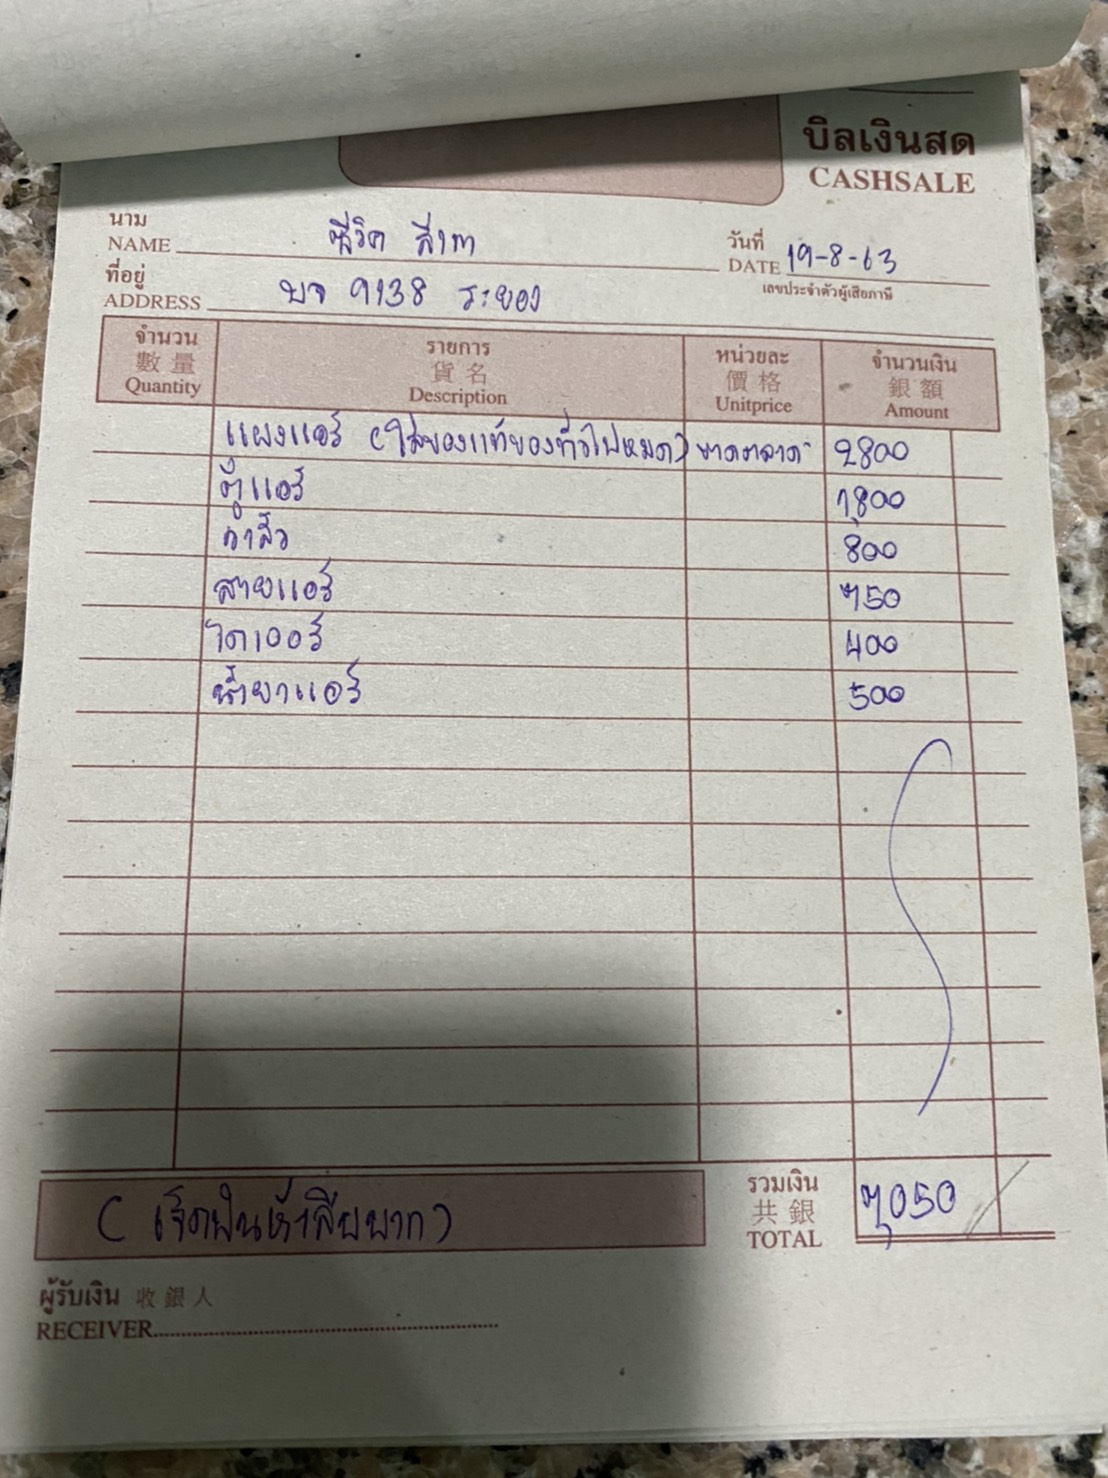 บิลเงินสด
CASHSALE
นาม
NAME ซีวิค สีเทา
วันที่
DATE 19-8-63
ที่อยู่
ADDRESS บจ 9138 ระยอง
เลขประจำตัวผู้เสียภาษี
จำนวน 數量 Quantity
รายการ 貨名 Description
หน่วยละ 價格 Unitprice
จำนวนเงิน 銀額 Amount
แผงแอร์ (ใส่ของแท้ของทั่วไปหมด) ขาดตลาด 2800
ตู้แอร์ 1800
วาล์ว 800
สายแอร์ 750
ไดเออร์ 400
น้ำยาแอร์ 500
(เจ็ดพันห้าสิบบาท)
รวมเงิน
共銀
TOTAL 7,050
ผู้รับเงิน 收銀人
RECEIVER